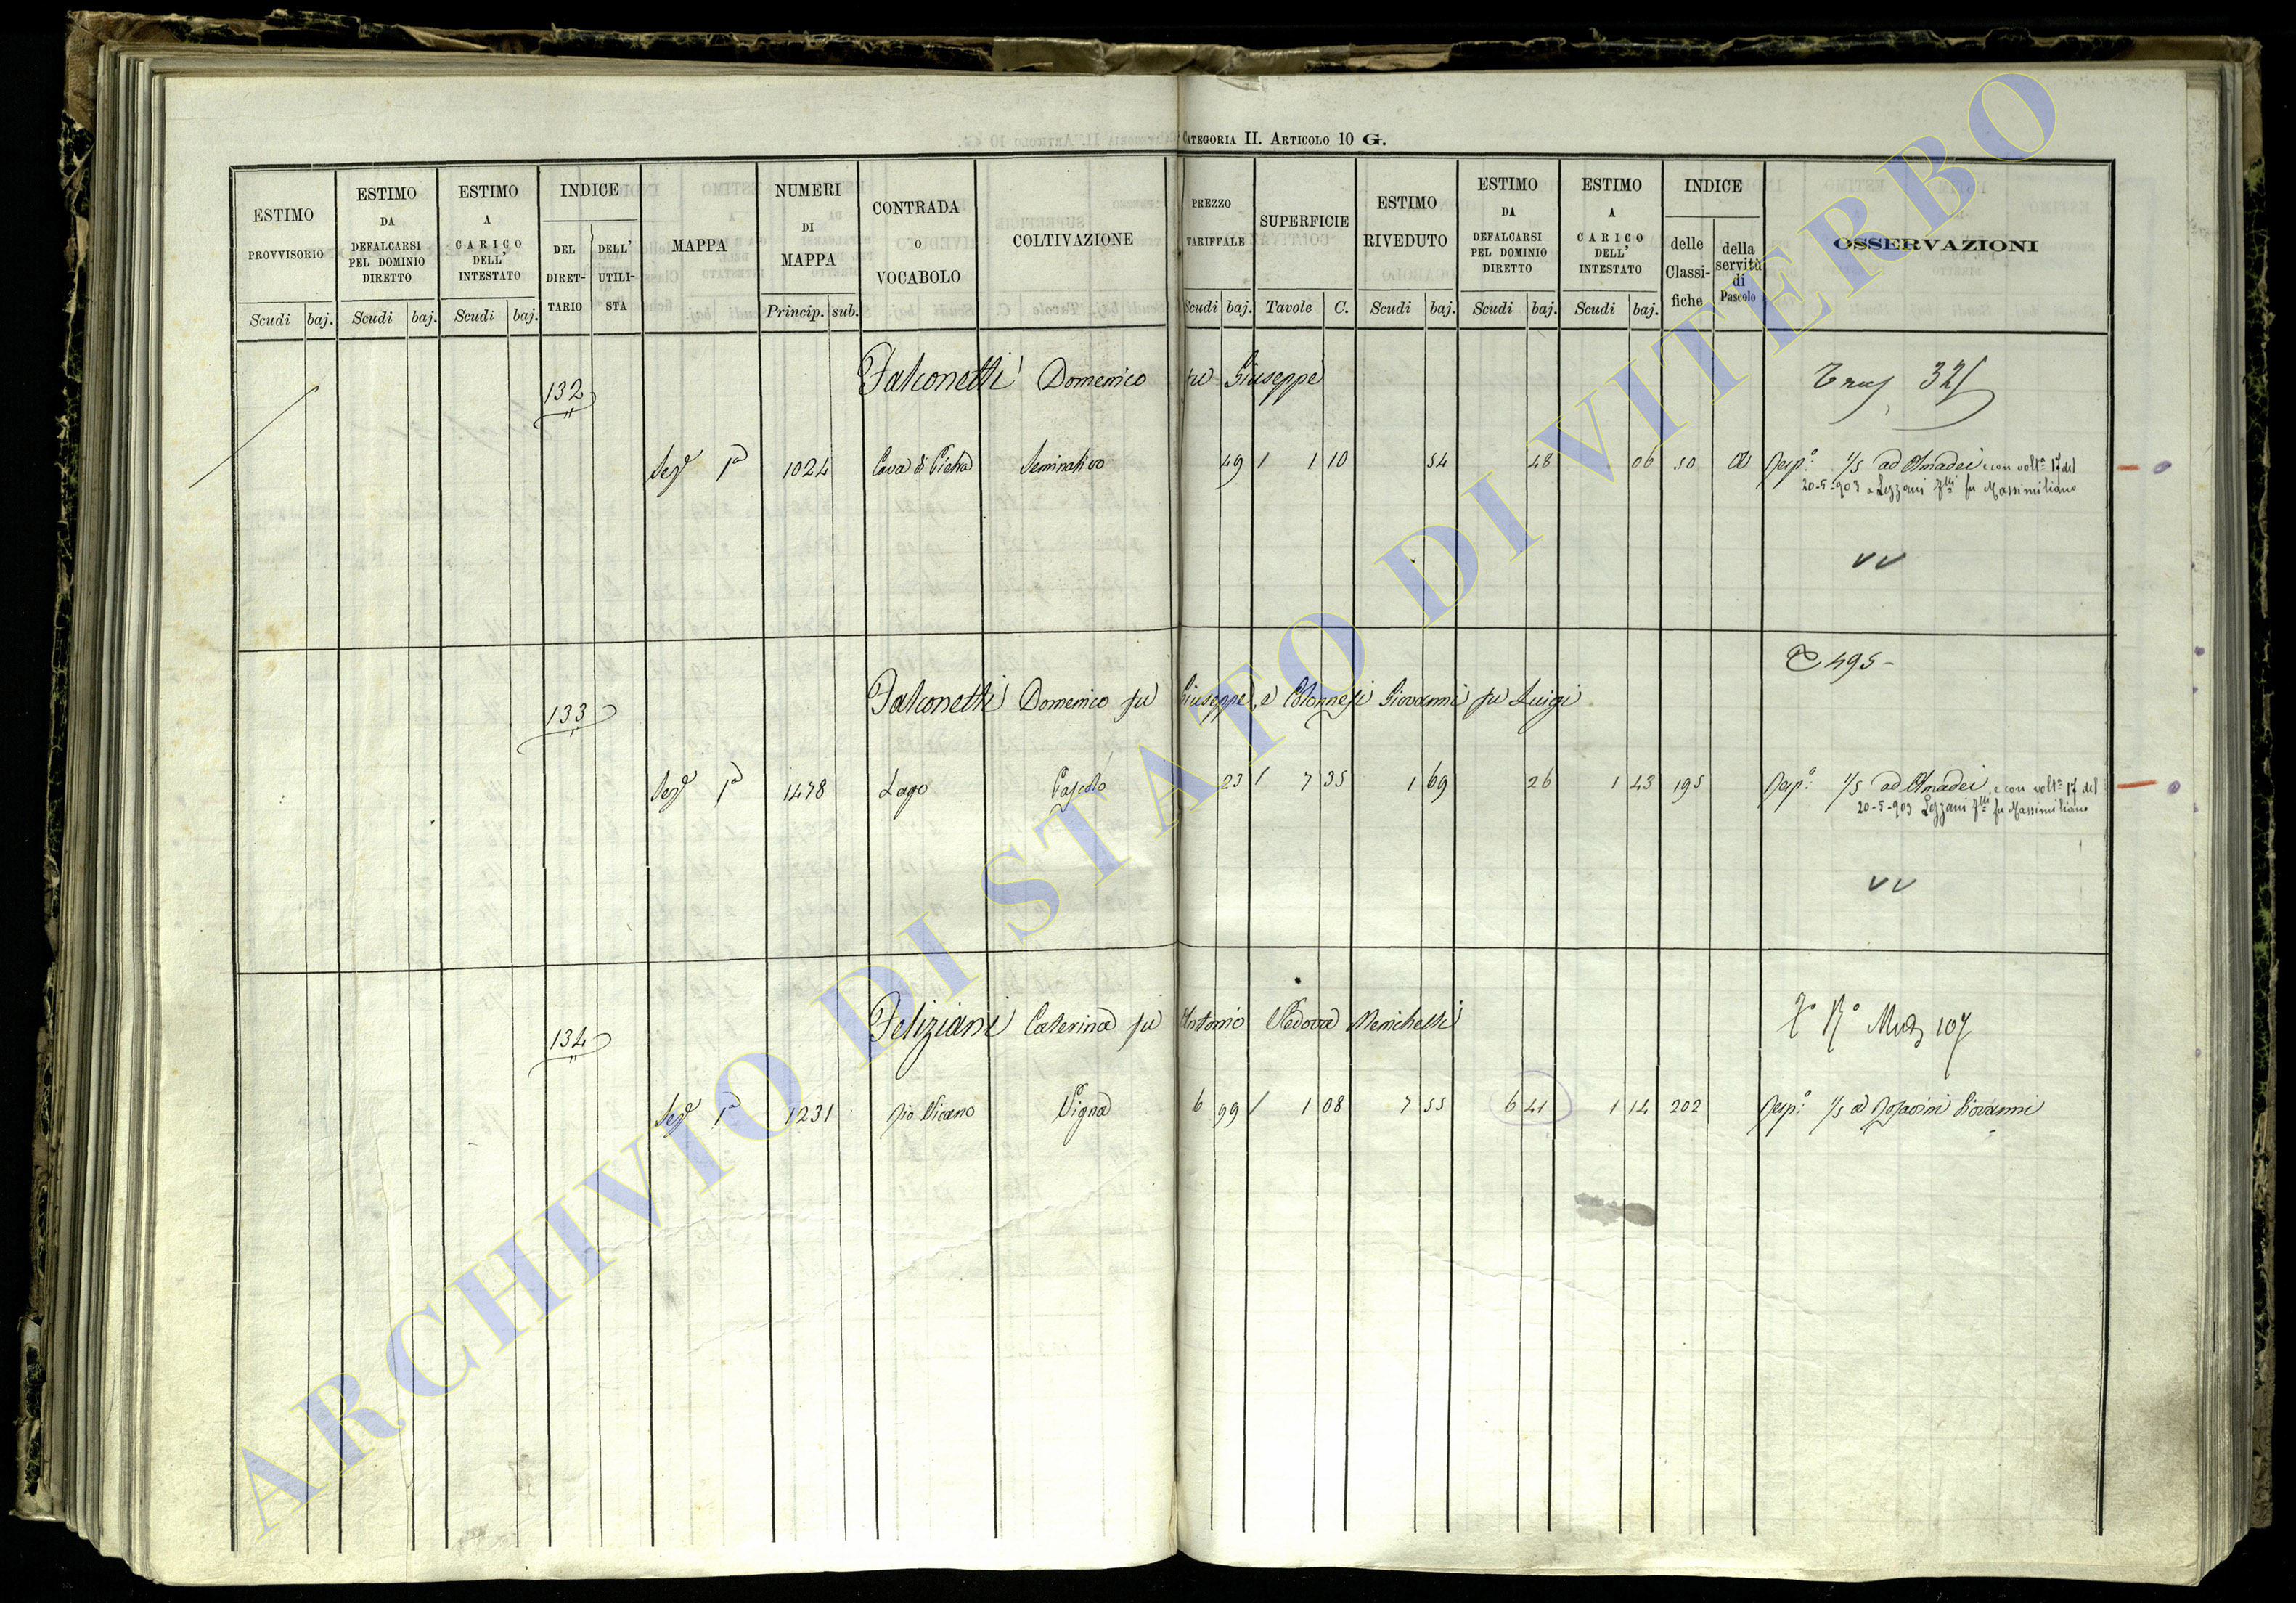 CATEGORIA II. ARTICOLO 10 G.
ESTIMO PROVVISORIO Scudi baj.
ESTIMO DA DEFALCARSI PEL DOMINIO DIRETTO Scudi baj.
ESTIMO A CARICO DELL' INTESTATO Scudi baj.
INDICE DEL DIRETTARIO DELL' UTILISTA
MAPPA
NUMERI DI MAPPA Princip. sub.
CONTRADA O VOCABOLO
COLTIVAZIONE
PREZZO TARIFFALE Scudi baj.
SUPERFICIE Tavole C.
ESTIMO RIVEDUTO Scudi baj.
ESTIMO DA DEFALCARSI PEL DOMINIO DIRETTO Scudi baj.
ESTIMO A CARICO DELL' INTESTATO Scudi baj.
INDICE delle Classifiche della servitù di Pascolo
OSSERVAZIONI
132 Falconetti Domenico fu Giuseppe
Sez.e 1a 1024 Cava di Pietra Seminativo 49 / 1 10 54 48 06 50 Risp.e 1/5 ad Amadei e con volt.a 17 del
20-5-903 a Lezzani F.lli fu Massimiliano
VV
495-
133 Falconetti Domenico fu Giuseppe, e Colonnesi Giovanni fu Luigi
Sez.e 1a 1478 Lago Pascolo 23 / 7 35 1 69 26 1 43 195 Risp.e 1/5 ad Amadei, e con volt.a 17 del
20-5-903 Lezzani F.lli fu Massimiliano
VV
134 Feliziani Caterina fu Antonio Vedova Menichelli
107
Sez.e 1a 1231 Rio Vicano Vigna 6 99 / 1 08 7 55 6 41 1 14 202 Risp.e 1/5 a Giovanni
ARCHIVIO DI STATO DI VITERBO